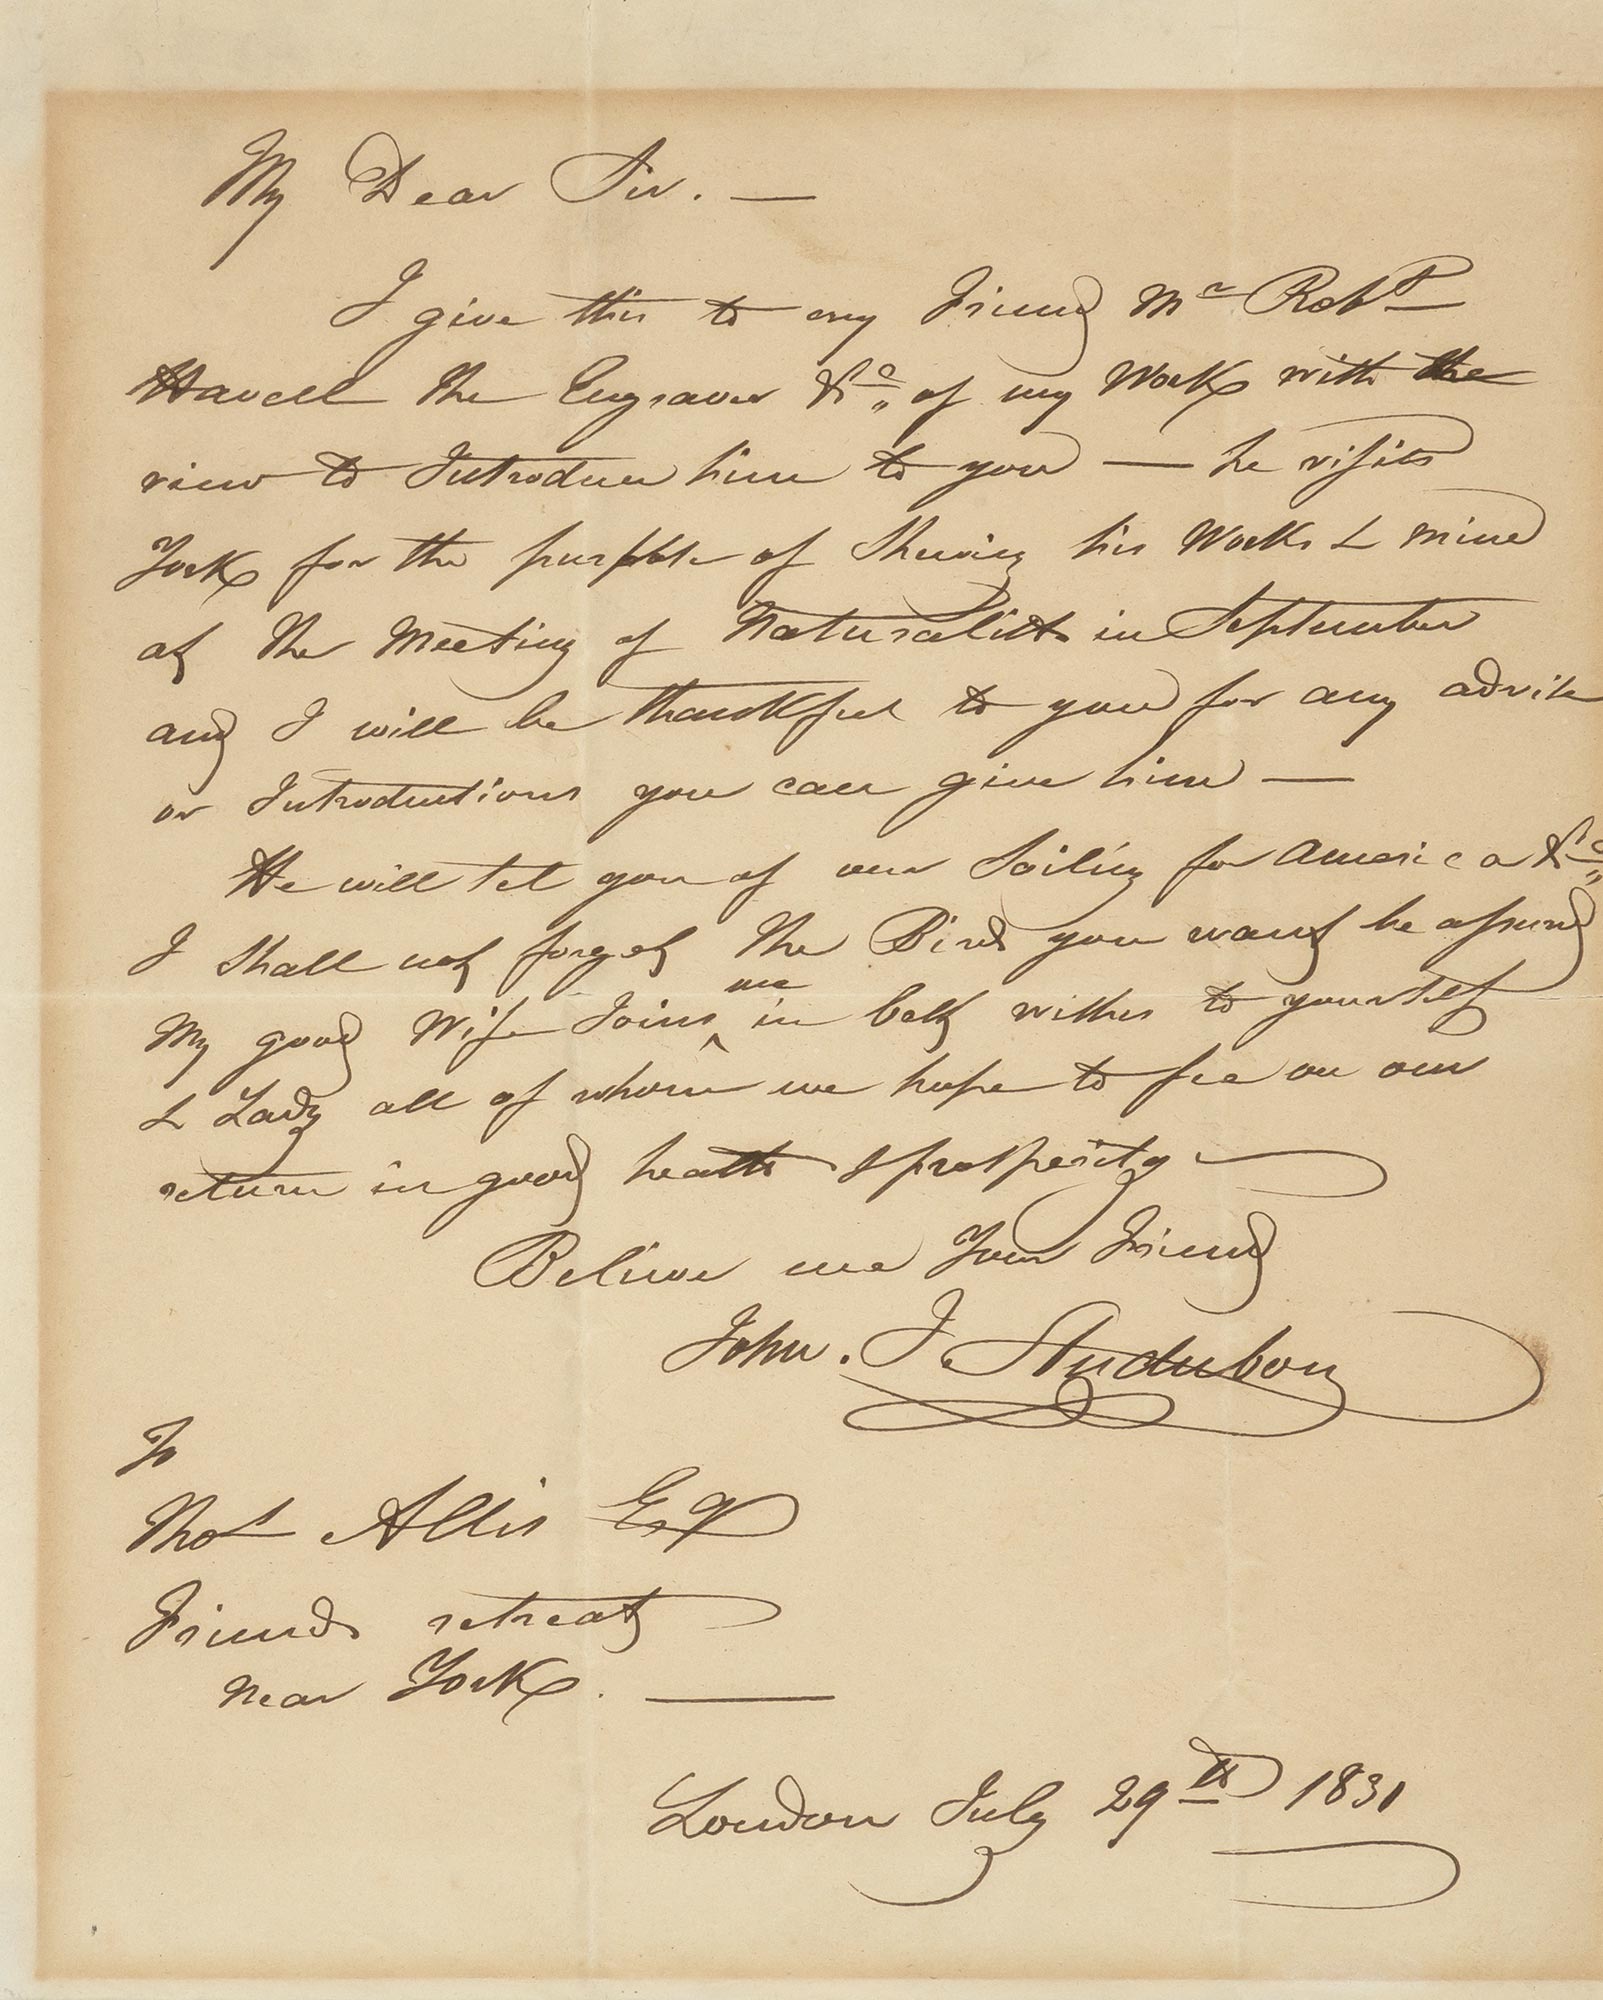 My Dear Sir. —
I give this to my Friend Mr Robt
Havell the Engraver &c of my Work with the
view to Introduce him to you — he visits
York for the purpose of Shewing his Works & mine
at the Meeting of Naturalists in September
and I will be thankful to you for any advise
or Introductions you can give him —
He will tel you of our Sailing for America &c
I Shall not forget the Birds you want be assured
My good Wife Joins me in best wishes to yourself
& Lady all of whom we hope to see on our
return in good health & prosperity
Believe me Your Friend
John. J. Audubon
To
Thos Allis Esq
Friends retreat
Near York. —
London July 29th 1831